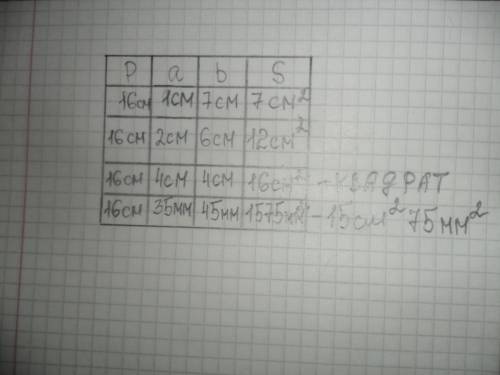 P a b S
16см 1см 7см 7см²
16см 2см 6см 12см²
16см 4см 4см 16см² - КВАДРАТ
16см 35мм 45мм 1575мм² - 15см² 75мм²